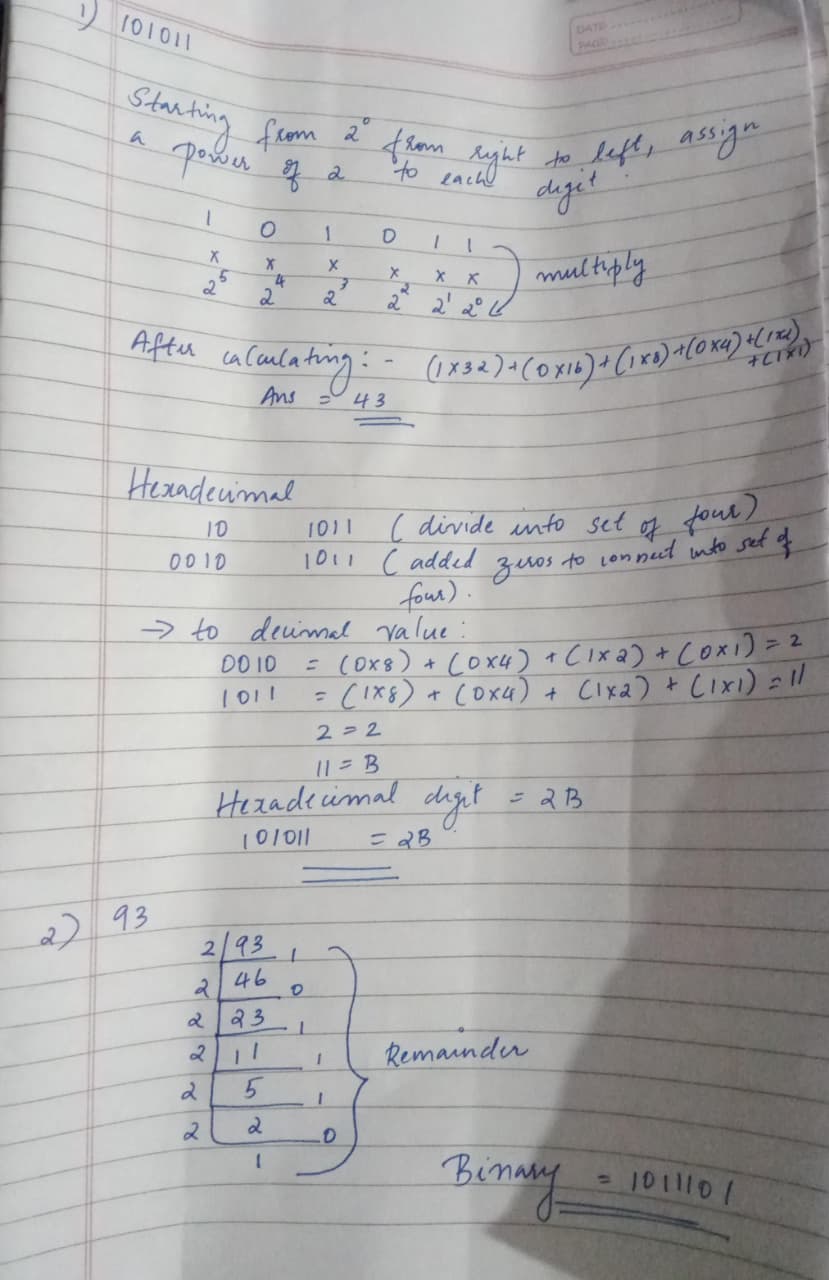 DATE
PAGE
1) 101011
Starting from 2⁰ from right to left, assign
a power of 2 to each digit.
1 0 1 0 1 1
x x x x x x multiply
2⁵ 2⁴ 2³ 2² 2¹ 2⁰
After calculating:- (1x32)+(0x16)+(1x8)+(0x4)+(1x2)
+(1x1)
Ans = 43
Hexadecimal
10 1011 (divide into set of four)
0010 1011 (added zeros to connect into set of
four).
→ to decimal value:
0010 = (0x8) + (0x4) + (1x2) + (0x1) = 2
1011 = (1x8) + (0x4) + (1x2) + (1x1) = 11
2 = 2
11 = B
Hexadecimal digit = 2B
101011 = 2B
2) 93
2 93 1
2 46 0
2 23 1
2 11 1 Remainder
2 5 1
2 2 0
1
Binary = 1011101